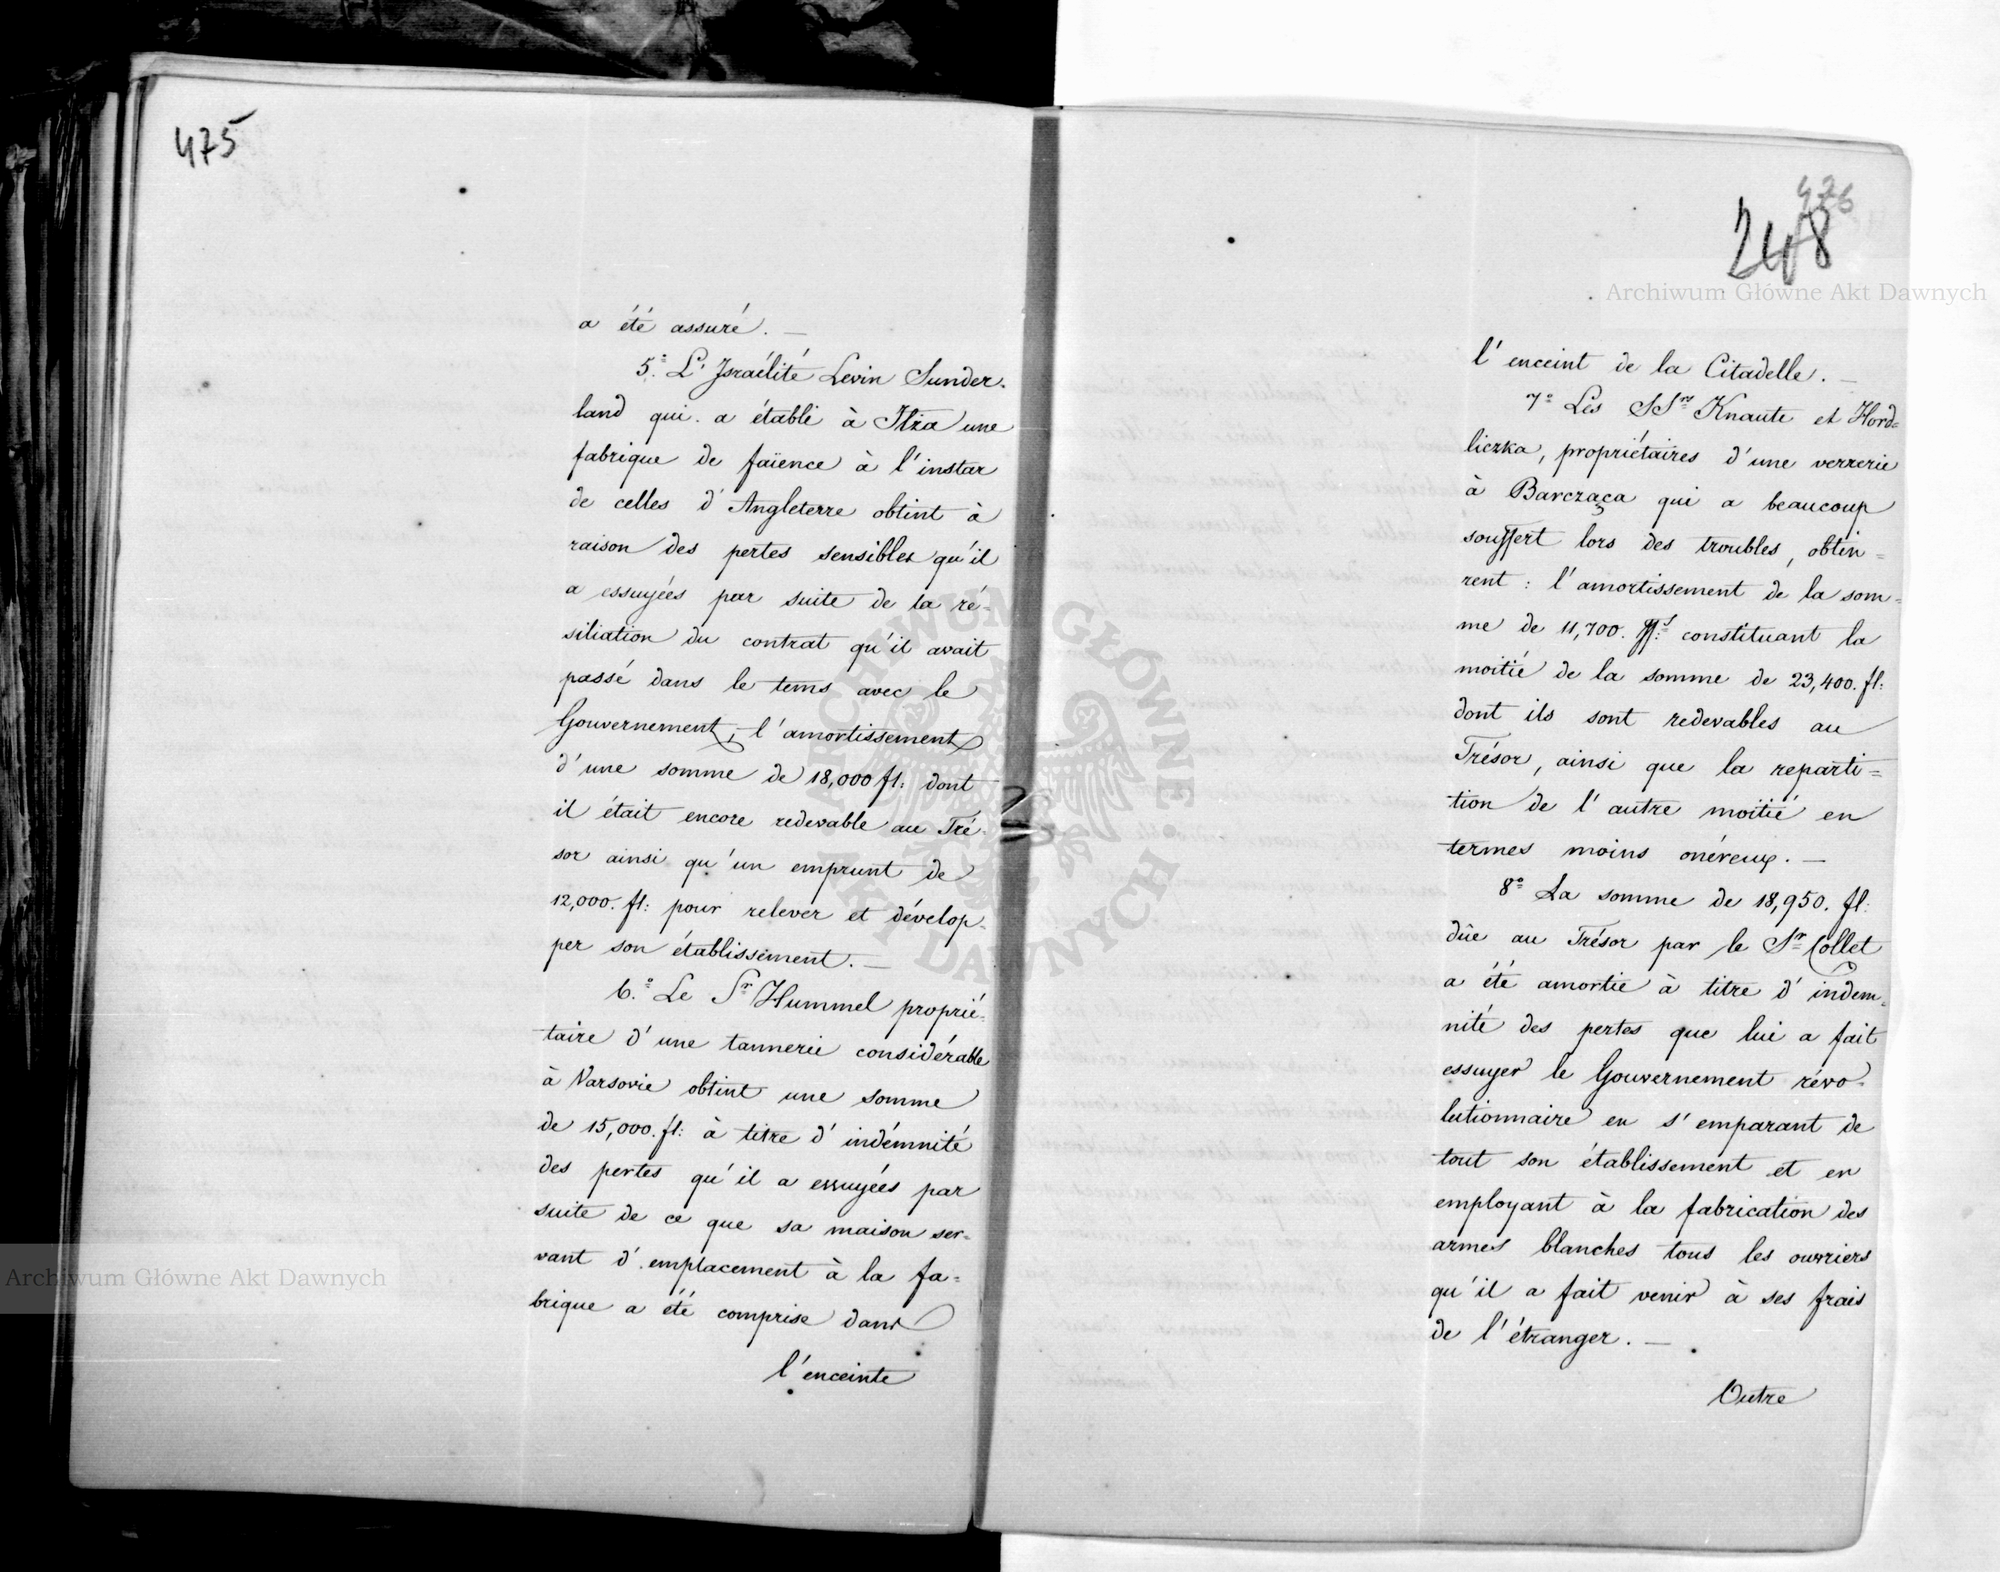 475
a été assuré. —
5.° L'Israélité Levin Sunder-
land qui a établi à Iłża une
fabrique de faïence à l'instar
de celles d'Angleterre obtint à
raison des pertes sensibles qu'il
a essuyées par suite de la ré-
siliation du contrat qu'il avait
passé dans le tems avec le
Gouvernement, l'amortissement
d'une somme de 18,000 fl: dont
il était encore redevable au Tré-
sor ainsi qu'un emprunt de
12,000. fl: pour relever et dévelop-
per son établissement. —
6.° Le Sr Hummel proprié-
taire d'une tannerie considérable
à Varsovie obtint une somme
de 15,000. fl: à titre d'indémnité
des pertes qu'il a essuyées par
suite de ce que sa maison ser-
vant d'emplacement à la fa=
brique a été comprise dans
l'enceinte
476
248
l'enceint de la Citadelle. —
7° Les SSrs Knaute et Hord=
liczka, propriétaires d'une verrerie
à Barczaça qui a beaucoup
souffert lors des troubles, obtin=
rent: l'amortissement de la som=
me de 11,700. ffs: constituant la
moitié de la somme de 23,400. fl:
dont ils sont redevables au
Trésor, ainsi que la reparti=
tion de l'autre moitié en
termes moins onéreux. —
8° La somme de 18,950. fl:
dûe au Trésor par le Sr Collet
a été amortie à titre d'indem-
nité des pertes que lui a fait
essuyer le Gouvernement révo-
lutionnaire en s'emparant de
tout son établissement et en
employant à la fabrication des
armes blanches tous les ouvriers
qu'il a fait venir à ses frais
de l'étranger. —
Outre
Archiwum Główne Akt Dawnych
Archiwum Główne Akt Dawnych
ARCHIWUM GŁÓWNE AKT DAWNYCH